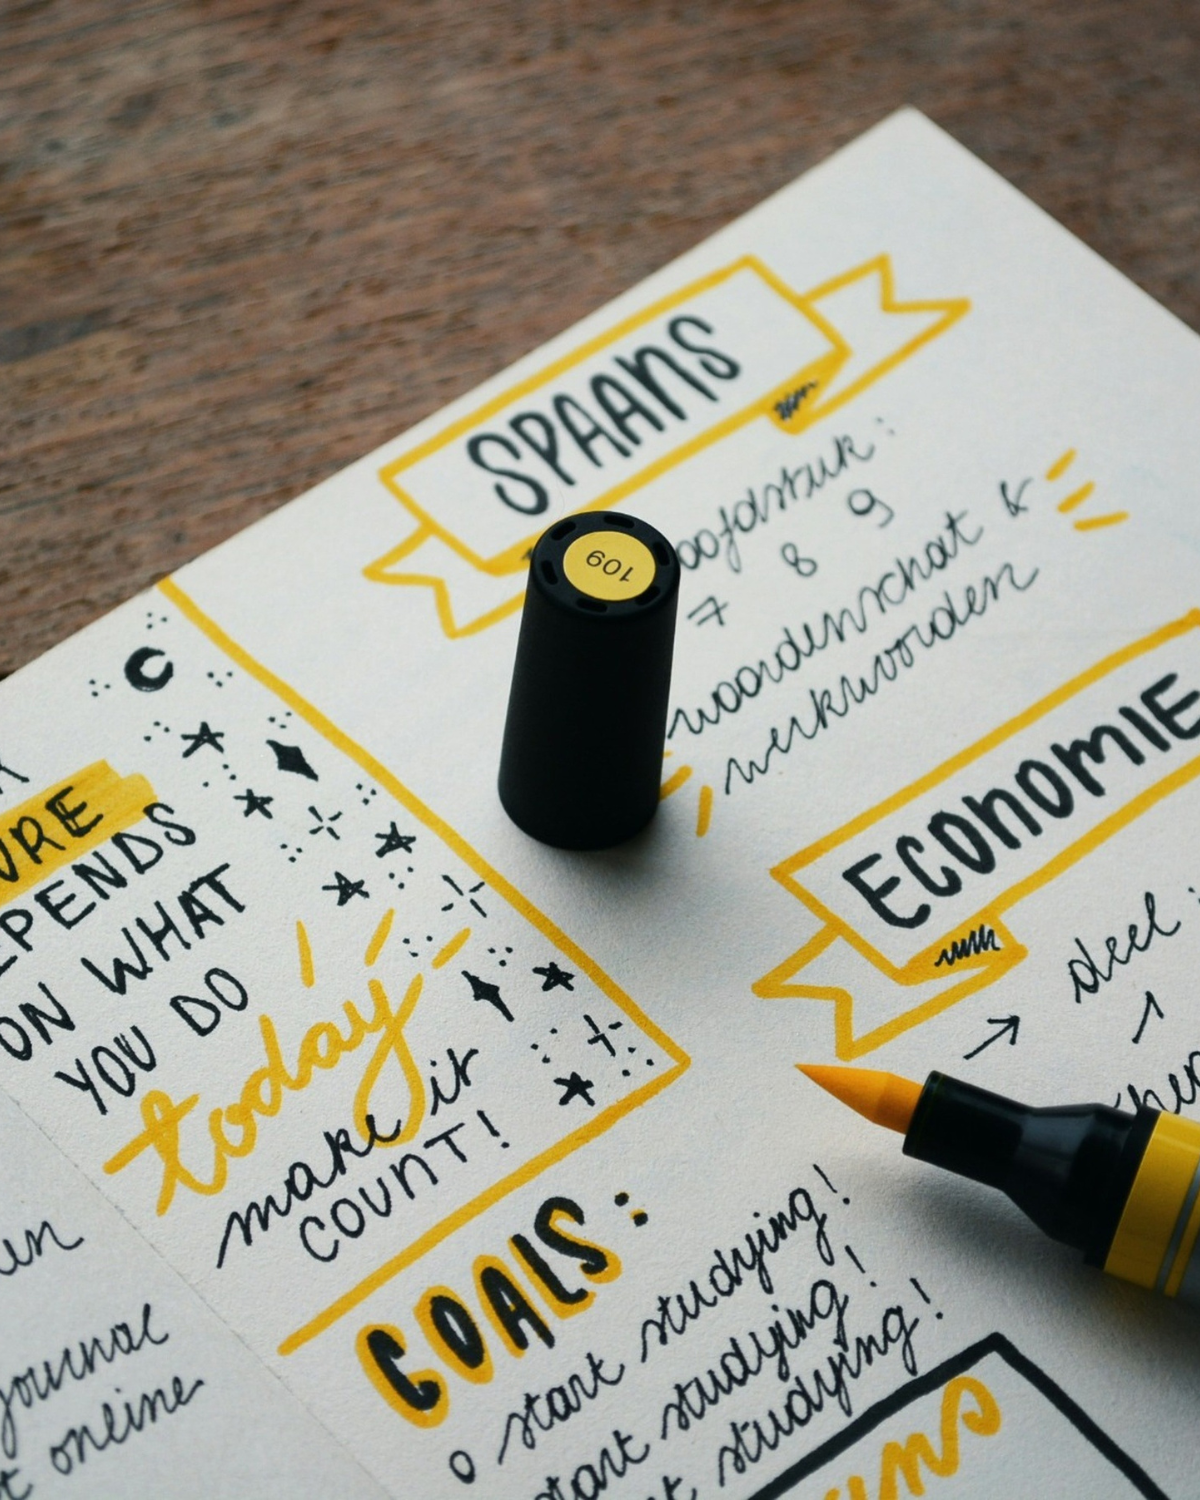 SPAANS
7 8 9
woordenschat &
werkwoorden
ECONOMIE
→ deel :
109
DEPENDS
ON WHAT
YOU DO
today
make it
COUNT!
GOALS:
o start studying!
start studying!
studying!
journal
online